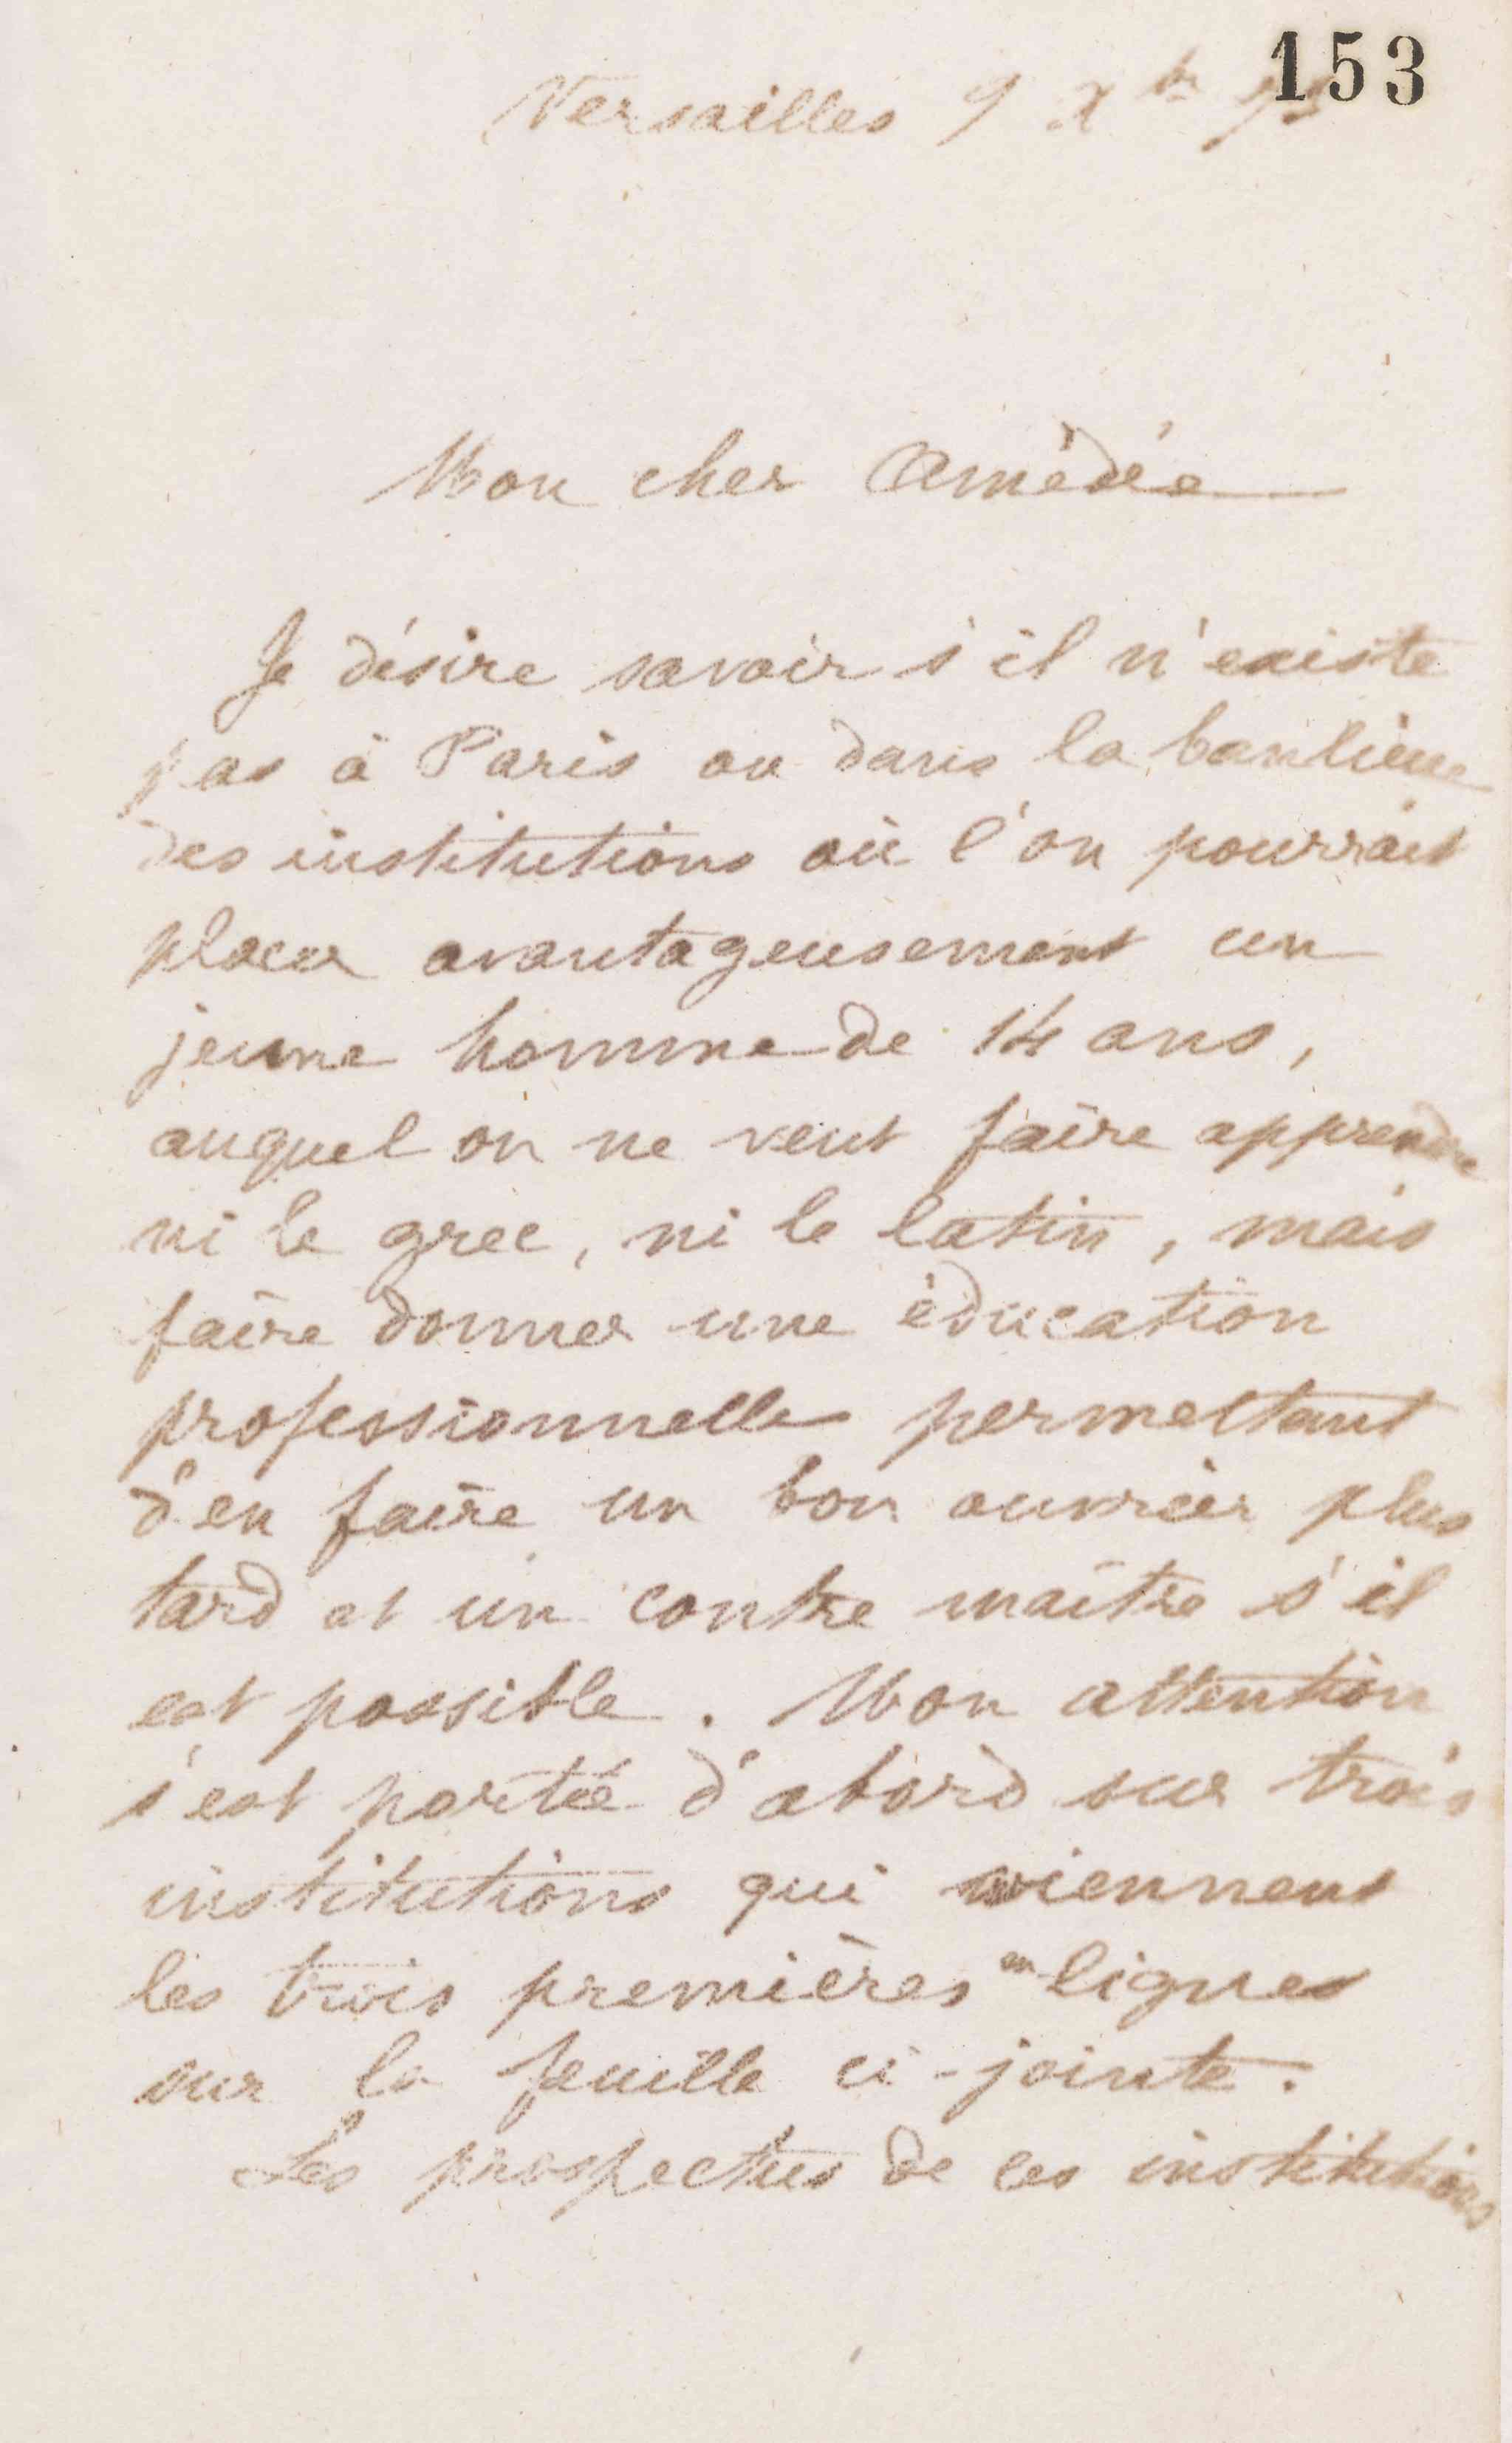 153
Versailles 9 Xbre
Mon cher Amédée
Je désire savoir s'il n'existe
pas à Paris ou dans la banlieue
des institutions où l'on pourrait
placer avantageusement un
jeune homme de 14 ans,
auquel on ne veut faire apprendre
ni le grec, ni le latin, mais
faire donner une éducation
professionnelle permettant
d'en faire un bon ouvrier plus
tard et un contre maître s'il
est possible. Mon attention
s'est portée d'abord sur trois
institutions qui viennent
les trois premières en lignes
sur la feuille ci-jointe.
Les prospectus de ces institutions